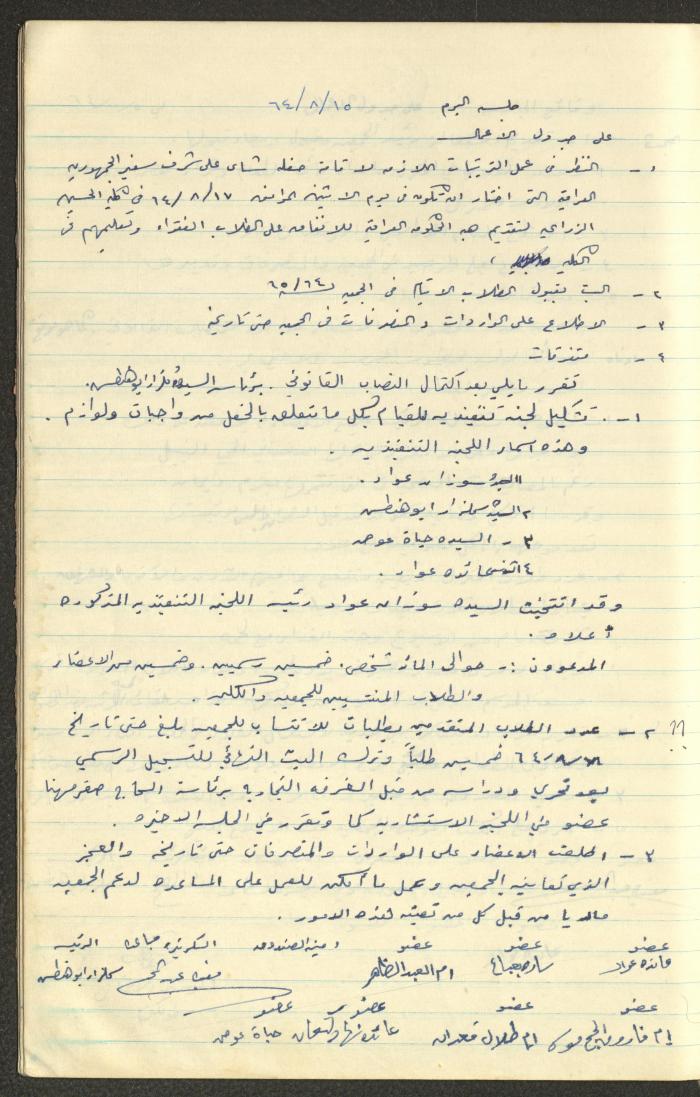 جلسه اليوم ٦٤/٨/١٥
على جدول الاعمال
١ - النظر في عمل الترتيبات اللازمه لاقامة حفله شاي على شرف سفير الجمهورية
العراقية التي اختار ان تكون في يوم الاثنين الموافق ٦٤/٨/١٧ في كلية الحسين
الزراعيه لتقديم هبه الحكومه العراقية للانفاق على الطلاب الفقراء وتعليمهم في
الكليه
٢ - البت بقبول الطلاب الايتام في الجمعيه لسنة ٦٥/٦٤
٣ - الاطلاع على الواردات والمتصرفات في الجمعيه حتى تاريخه
٤ - متفرقات
تقرر ما يلي بعد اكتمال النصاب القانوني . برئاسة السيده ابو هنطش .
١ - . تشكيل لجنه تنفيذيه للقيام بكل ما يتعلق بالحفل من واجبات ولوازم .
وهذه اسماء اللجنه التنفيذيه .
١ السيده سوزان عواد .
٢ السيده ابو هنطش
٣ - السيده حياة عوض
٤ فائده عواد .
وقد انتخبت السيده سوزان عواد رئيسه اللجنه التنفيذيه المذكوره
أعلاه .
المدعوون :- حوالي المائة شخص . خمسين رسميين . وخمسين من الاعضاء
والطلاب المنتسبين للجمعيه والكليه .
؟؟ ٢ - عدد الطلاب المتقدمين بطلبات للانتساب للجمعيه بلغ حتى تاريخ
٦٤ خمسين طلباً وترك البت النهائي للتسجيل الرسمي
بعد تحري ودراسه من قبل الغرفه التجاريه برئاسة الحاج مهنا
عضو في اللجنه الاستشاريه كما وتقرر في الجلسه الاخيره .
٣ - اطلعت الاعضاء على الواردات والمتصرفات حتى تاريخه والعجز
الذي تعانيه الجمعيه وعمل ما أمكن للعمل على المساعده لدعم الجمعيه
ماديا من قبل كل من تعينه هذه الامور .
عضو عضو عضو امينة الصندوق السكرتيره الرئيسه
فائده عواد ساره ام العبد الظاهر ابو هنطش
عضو عضو عضو عضو
ام فاروق ام طلال قعدان عائده حياة عوض